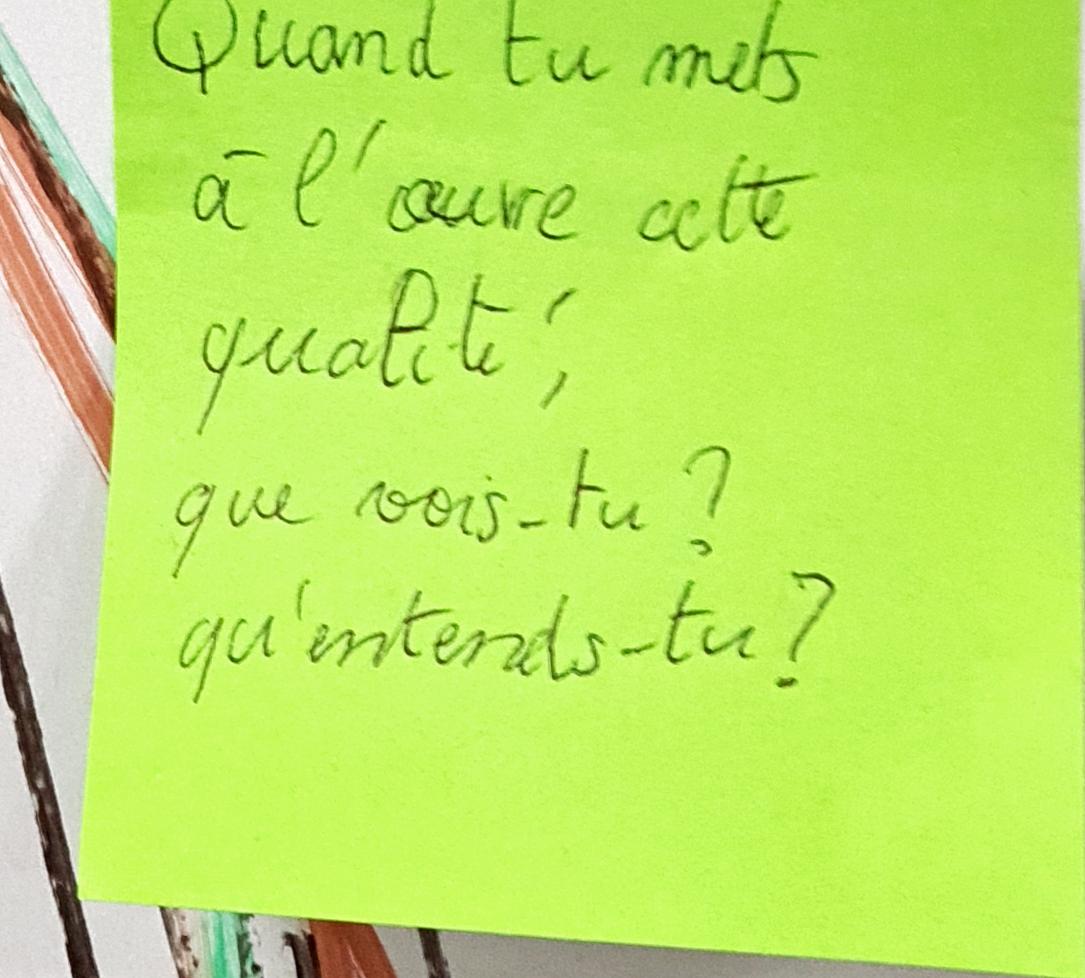 Quand tu mets
à l'œuvre cette
qualité,
que vois-tu ?
qu'entends-tu ?